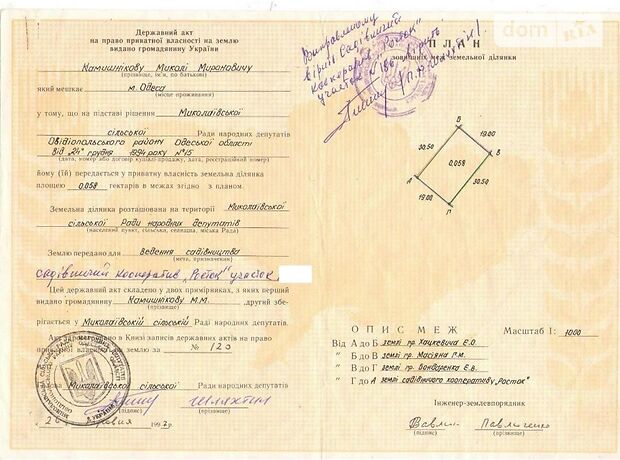 Державний акт
на право приватної власності на землю
видано громадянину України
Камишнікову Миколі Мироновичу
(прізвище, ім'я, по батькові)
який мешкає м. Одеса
(місце проживання)
у тому, що на підставі рішення Миколаївської
сільської Ради народних депутатів
Овідіопольського району Одеської області
від "24" грудня 1994 року №15
(дата, номер або договір купівлі-продажу, дата, реєстраційний номер)
йому (їй) передається у приватну власність земельна ділянка
площею 0,058 гектарів в межах згідно з планом.
Земельна ділянка розташована на території Миколаївської
сільської Ради народних депутатів
(населений пункт, сільська, селищна, міська Рада)
Землю передано для ведення садівництва
(мета, призначення)
садівничий кооператив "Росток" участок
Цей державний акт складено у двох примірниках, з яких перший
видано громадянину Камишнікову М.М. , другий збе-
(прізвище)
рігається у Миколаївській сільській Раді народних депутатів.
Акт зареєстровано в Книзі записів державних актів на право
приватної власності на землю за № 123
Голова Миколаївської сільської Ради народних депутатів
Шляхтич
(підпис) (прізвище)
199
Виправленому
вірить Садівничий
кооператив "Росток"
участок
dom RIA
ПЛАН
зовнішніх меж земельної ділянки
Б
30.50 19.00
В
0,058
А
30.50
19.00
Г
ОПИС МЕЖ Масштаб 1: 1000
Від А до Б землі гр. Хацкевича Е.О
" Б до В землі гр. Масіяна Г.М.
" В до Г землі гр. Бондаренка Е.В.
" Г до А землі садівничого кооперативу „Росток"
Інженер-землевпорядник
Павленко
(підпис) (прізвище)